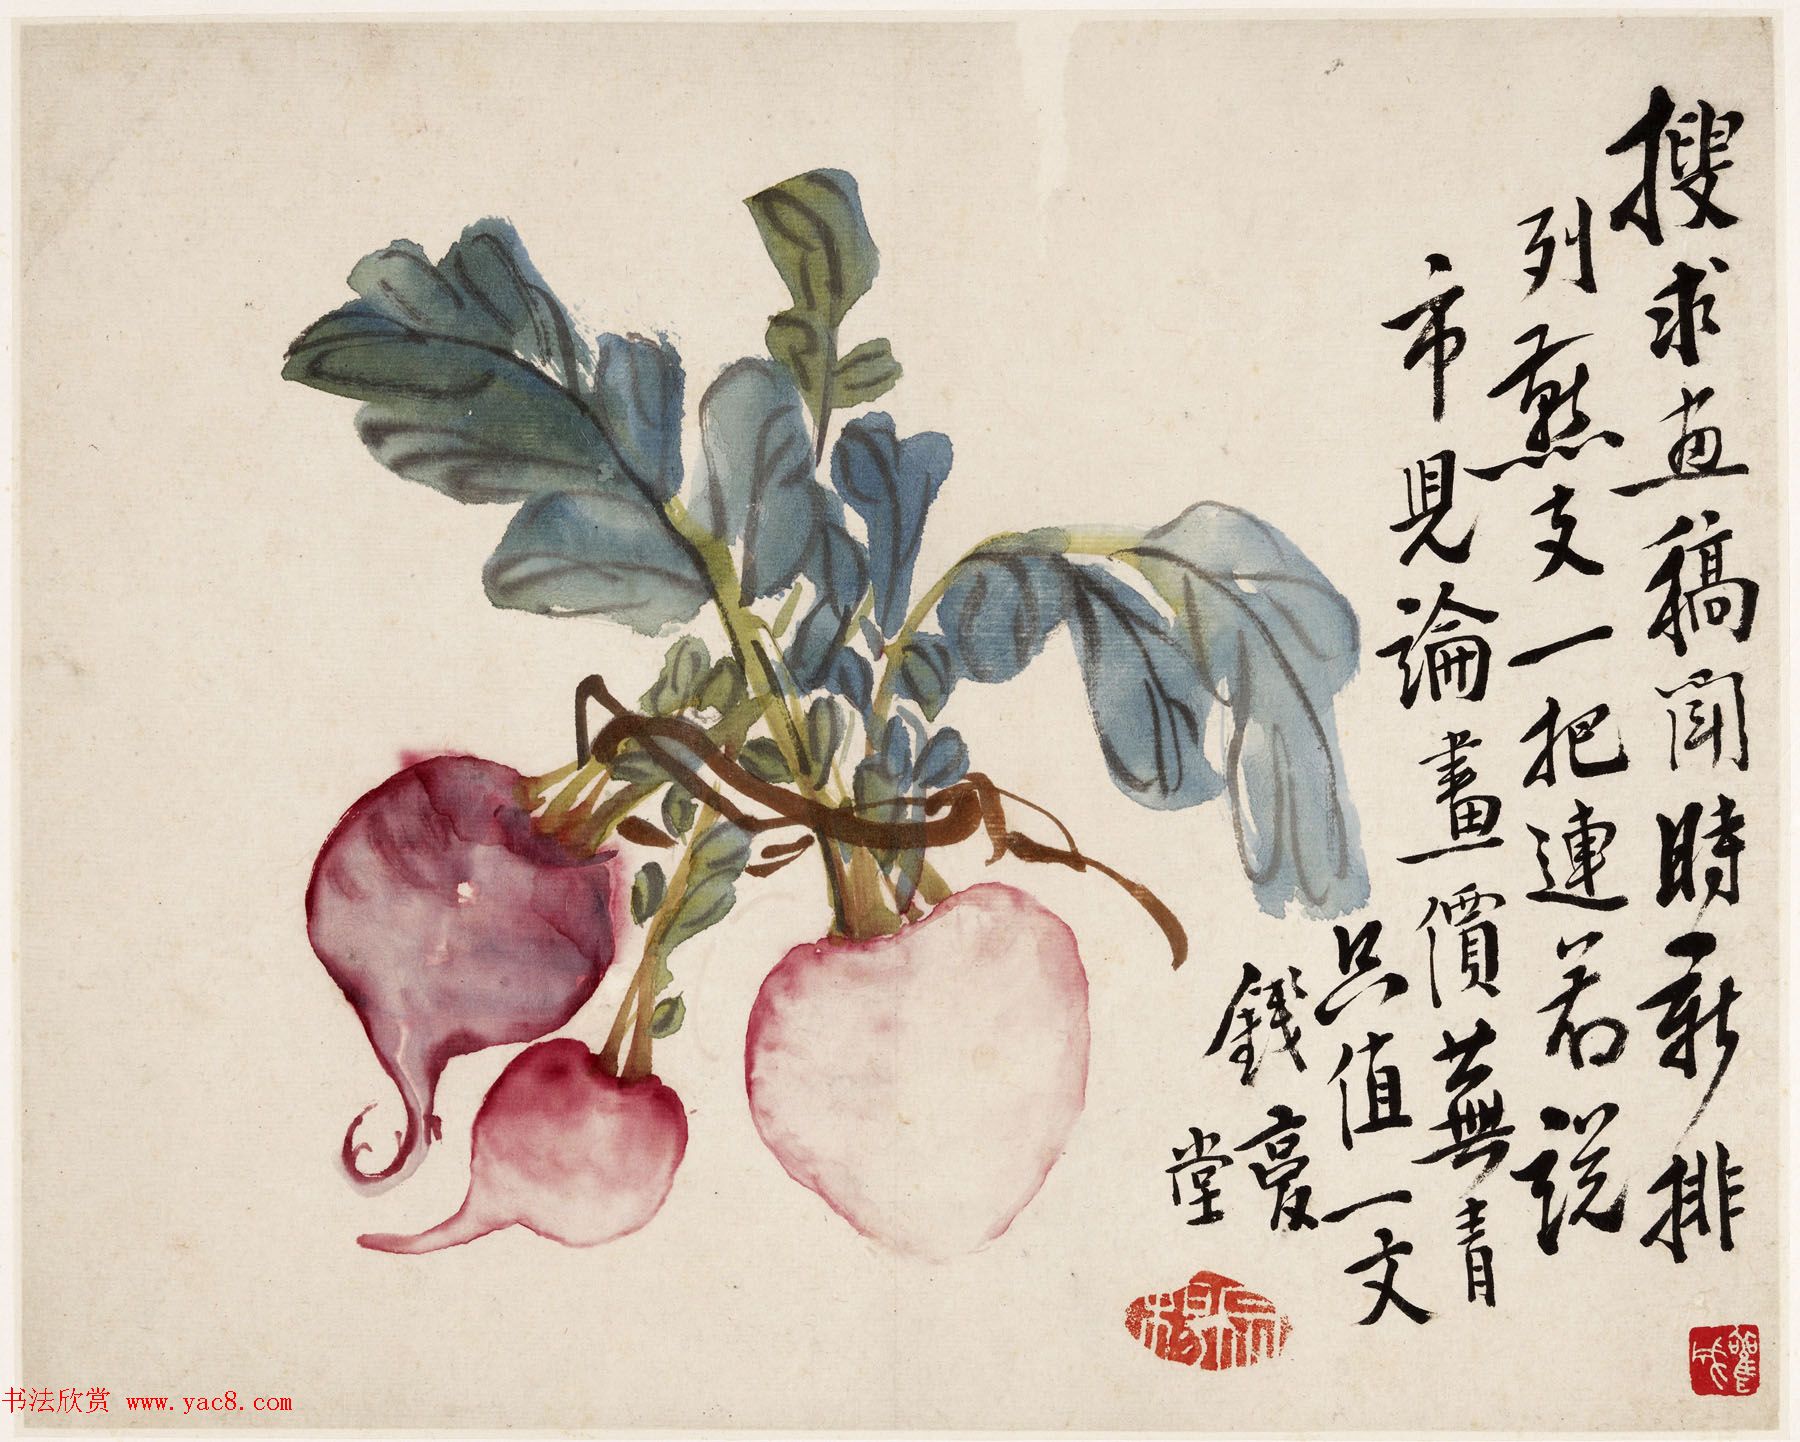 搜求画稿闻時新排
列燕支一把連若說
市見論畫價蕪青
只值一文
錢憂
堂
书法欣赏 www.yac8.com